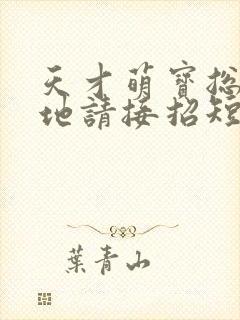 天才萌寶總
地請接招短
葉青山